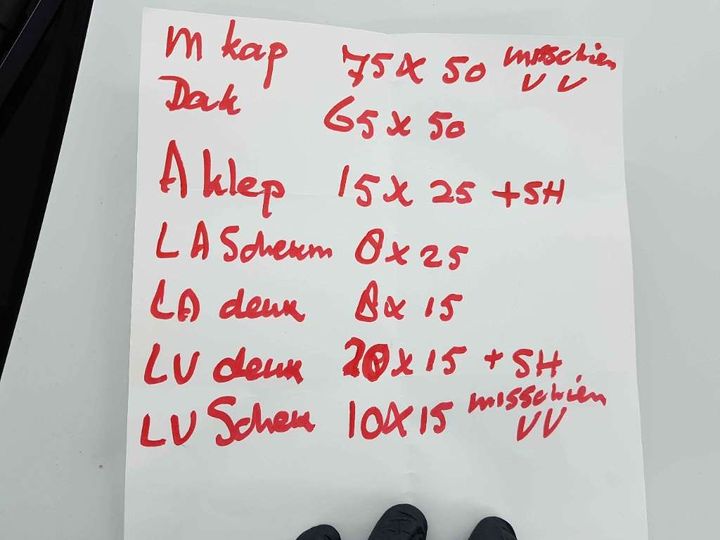 M kap 75 x 50 misschien VV
Dak 65 x 50
A klep 15 x 25 + SH
LA Scherm 8 x 25
LA deur 8 x 15
LV deur 20 x 15 + SH
LV Scherm 10 x 15 misschien VV